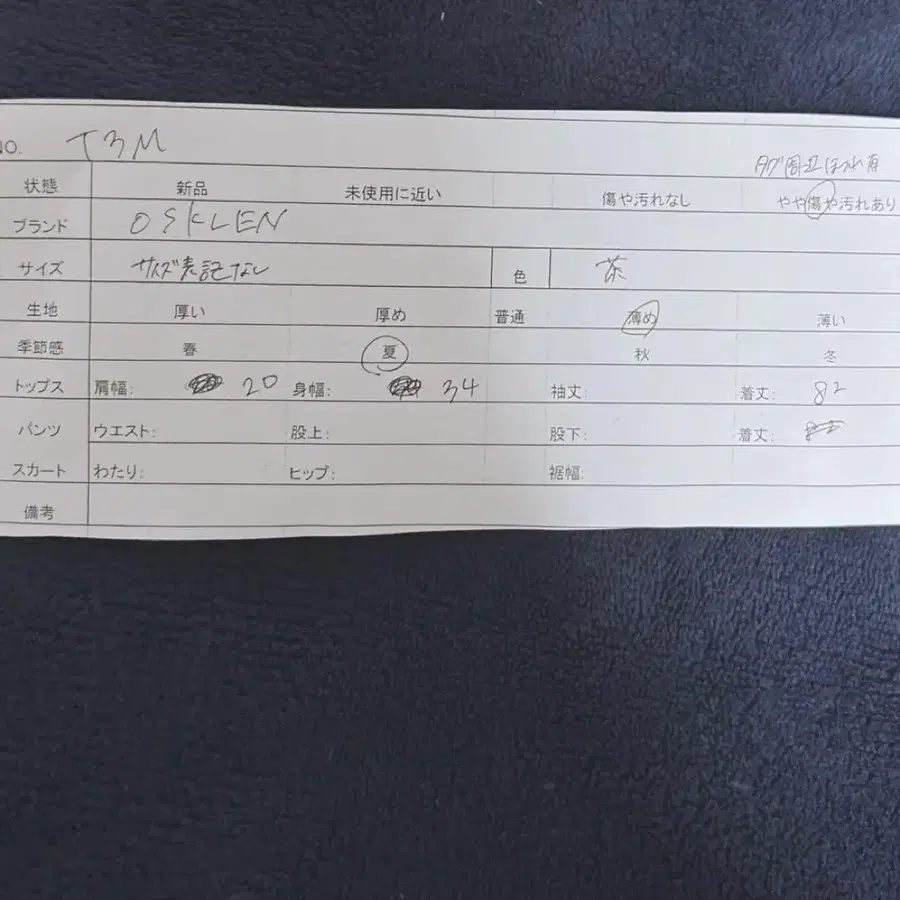 NO. T3M
タグ周辺ほつれ有
状態 新品 未使用に近い 傷や汚れなし やや傷や汚れあり
ブランド OSKLEN
サイズ サイズ表記なし 色 茶
生地 厚い 厚め 普通 薄め 薄い
季節感 春 夏 秋 冬
トップス 肩幅: 20 身幅: 34 袖丈: 着丈: 82
パンツ ウエスト: 股上: 股下: 着丈:
スカート わたり: ヒップ: 裾幅:
備考